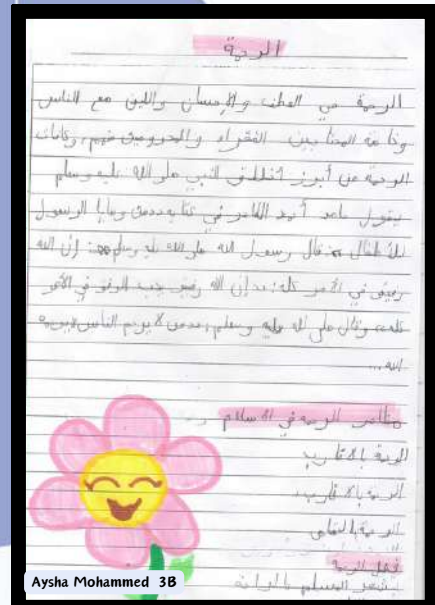 الرحمة
الرحمة هي العطف والإحسان واللين مع الناس
وخاصة المحتاجين الفقراء والمحرومين منهم، وكانت
الرحمة من أبرز أخلاق النبي صلى الله عليه وسلم
يقول في كتابه وصايا الرسول
للأطفال قال رسول الله صلى الله عليه وسلم إن الله
رفيق في الأمر كله إن الله رفيق يحب الرفق في الأمر
كله، وقال صلى الله عليه وسلم من لا يرحم الناس لا يرحمه
الله...
مظاهر الرحمة في الاسلام
الرحمة بالاقارب
الرحمة بالاقارب
الرحمة
فضل الرحمة
يشعر المسلم بالراحة
Aysha Mohammed 3B